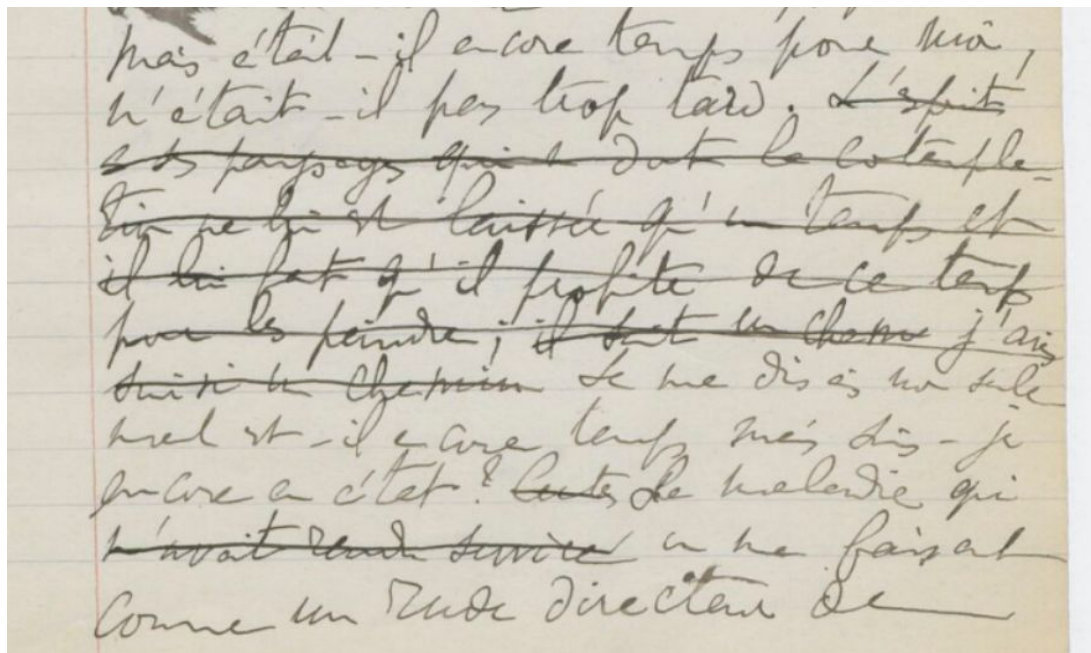 mais était-il encore temps pour moi,
n'était-il pas trop tard. L'esprit
a ses paysages dont la contempla-
tion ne lui est laissée qu'un temps et
il lui faut qu'il profite de ce temps
pour les peindre; il suit un chemin j'avais
suivi un chemin Je me disais non seule
ment est-il encore temps mais suis-je
encore en état? La maladie qui
m'avait rendu service en me faisant
comme un rude directeur de